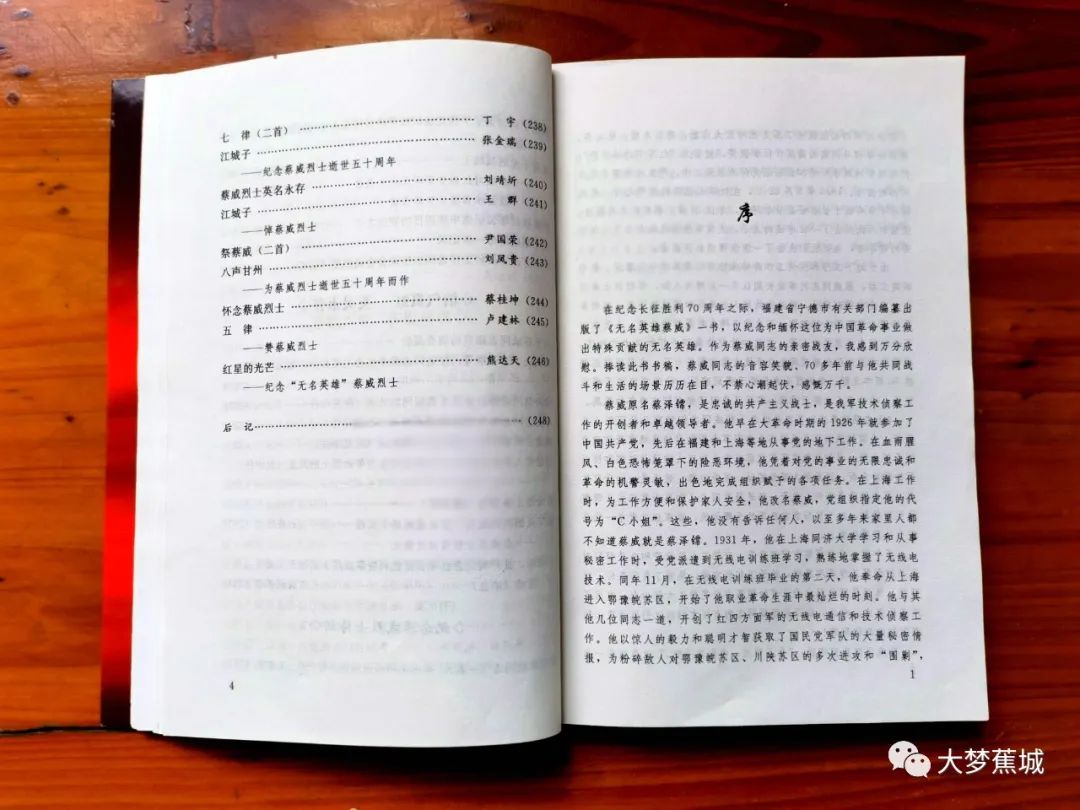 七 律（二首）……………………………… 丁 宇（238）
江城子……………………………………… 张金瑞（239）
——纪念蔡威烈士逝世五十周年
蔡威烈士英名永存………………………… 刘靖圻（240）
江城子……………………………………… 王 群（241）
——悼蔡威烈士
祭蔡威（二首）…………………………… 尹国荣（242）
八声甘州…………………………………… 刘凤贵（243）
——为蔡威烈士逝世五十周年而作
怀念蔡威烈士……………………………… 蔡桂坤（244）
五 律……………………………………… 卢建林（245）
——赞蔡威烈士
红星的光芒………………………………… 熊达天（246）
——纪念“无名英雄”蔡威烈士
后 记………………………………………（248）
4
序
在纪念长征胜利70周年之际，福建省宁德市有关部门编纂出
版了《无名英雄蔡威》一书，以纪念和缅怀这位为中国革命事业做
出特殊贡献的无名英雄。作为蔡威同志的亲密战友，我感到万分欣
慰。捧读此书书稿，蔡威同志的音容笑貌、70多年前与他共同战
斗和生活的场景历历在目，不禁心潮起伏，感慨万千。
蔡威原名蔡泽鏛，是忠诚的共产主义战士，是我军技术侦察工
作的开创者和卓越领导者。他早在大革命时期的1926年就参加了
中国共产党，先后在福建和上海等地从事党的地下工作。在血雨腥
风、白色恐怖笼罩下的险恶环境，他凭着对党的事业的无限忠诚和
革命的机警灵敏，出色地完成组织赋予的各项任务。在上海工作
时，为工作方便和保护家人安全，他改名蔡威，党组织指定他的代
号为“C小姐”。这些，他没有告诉任何人，以至多年来家里人都
不知道蔡威就是蔡泽鏛。1931年，他在上海同济大学学习和从事
秘密工作时，受党派遣到无线电训练班学习，熟练地掌握了无线电
技术。同年11月，在无线电训练班毕业的第二天，他奉命从上海
进入鄂豫皖苏区，开始了他职业革命生涯中最灿烂的时刻。他与其
他几位同志一道，开创了红四方面军的无线电通信和技术侦察工
作。他以惊人的毅力和聪明才智获取了国民党军队的大量秘密情
报，为粉碎敌人对鄂豫皖苏区、川陕苏区的多次进攻和“围剿”，
1
大梦蕉城